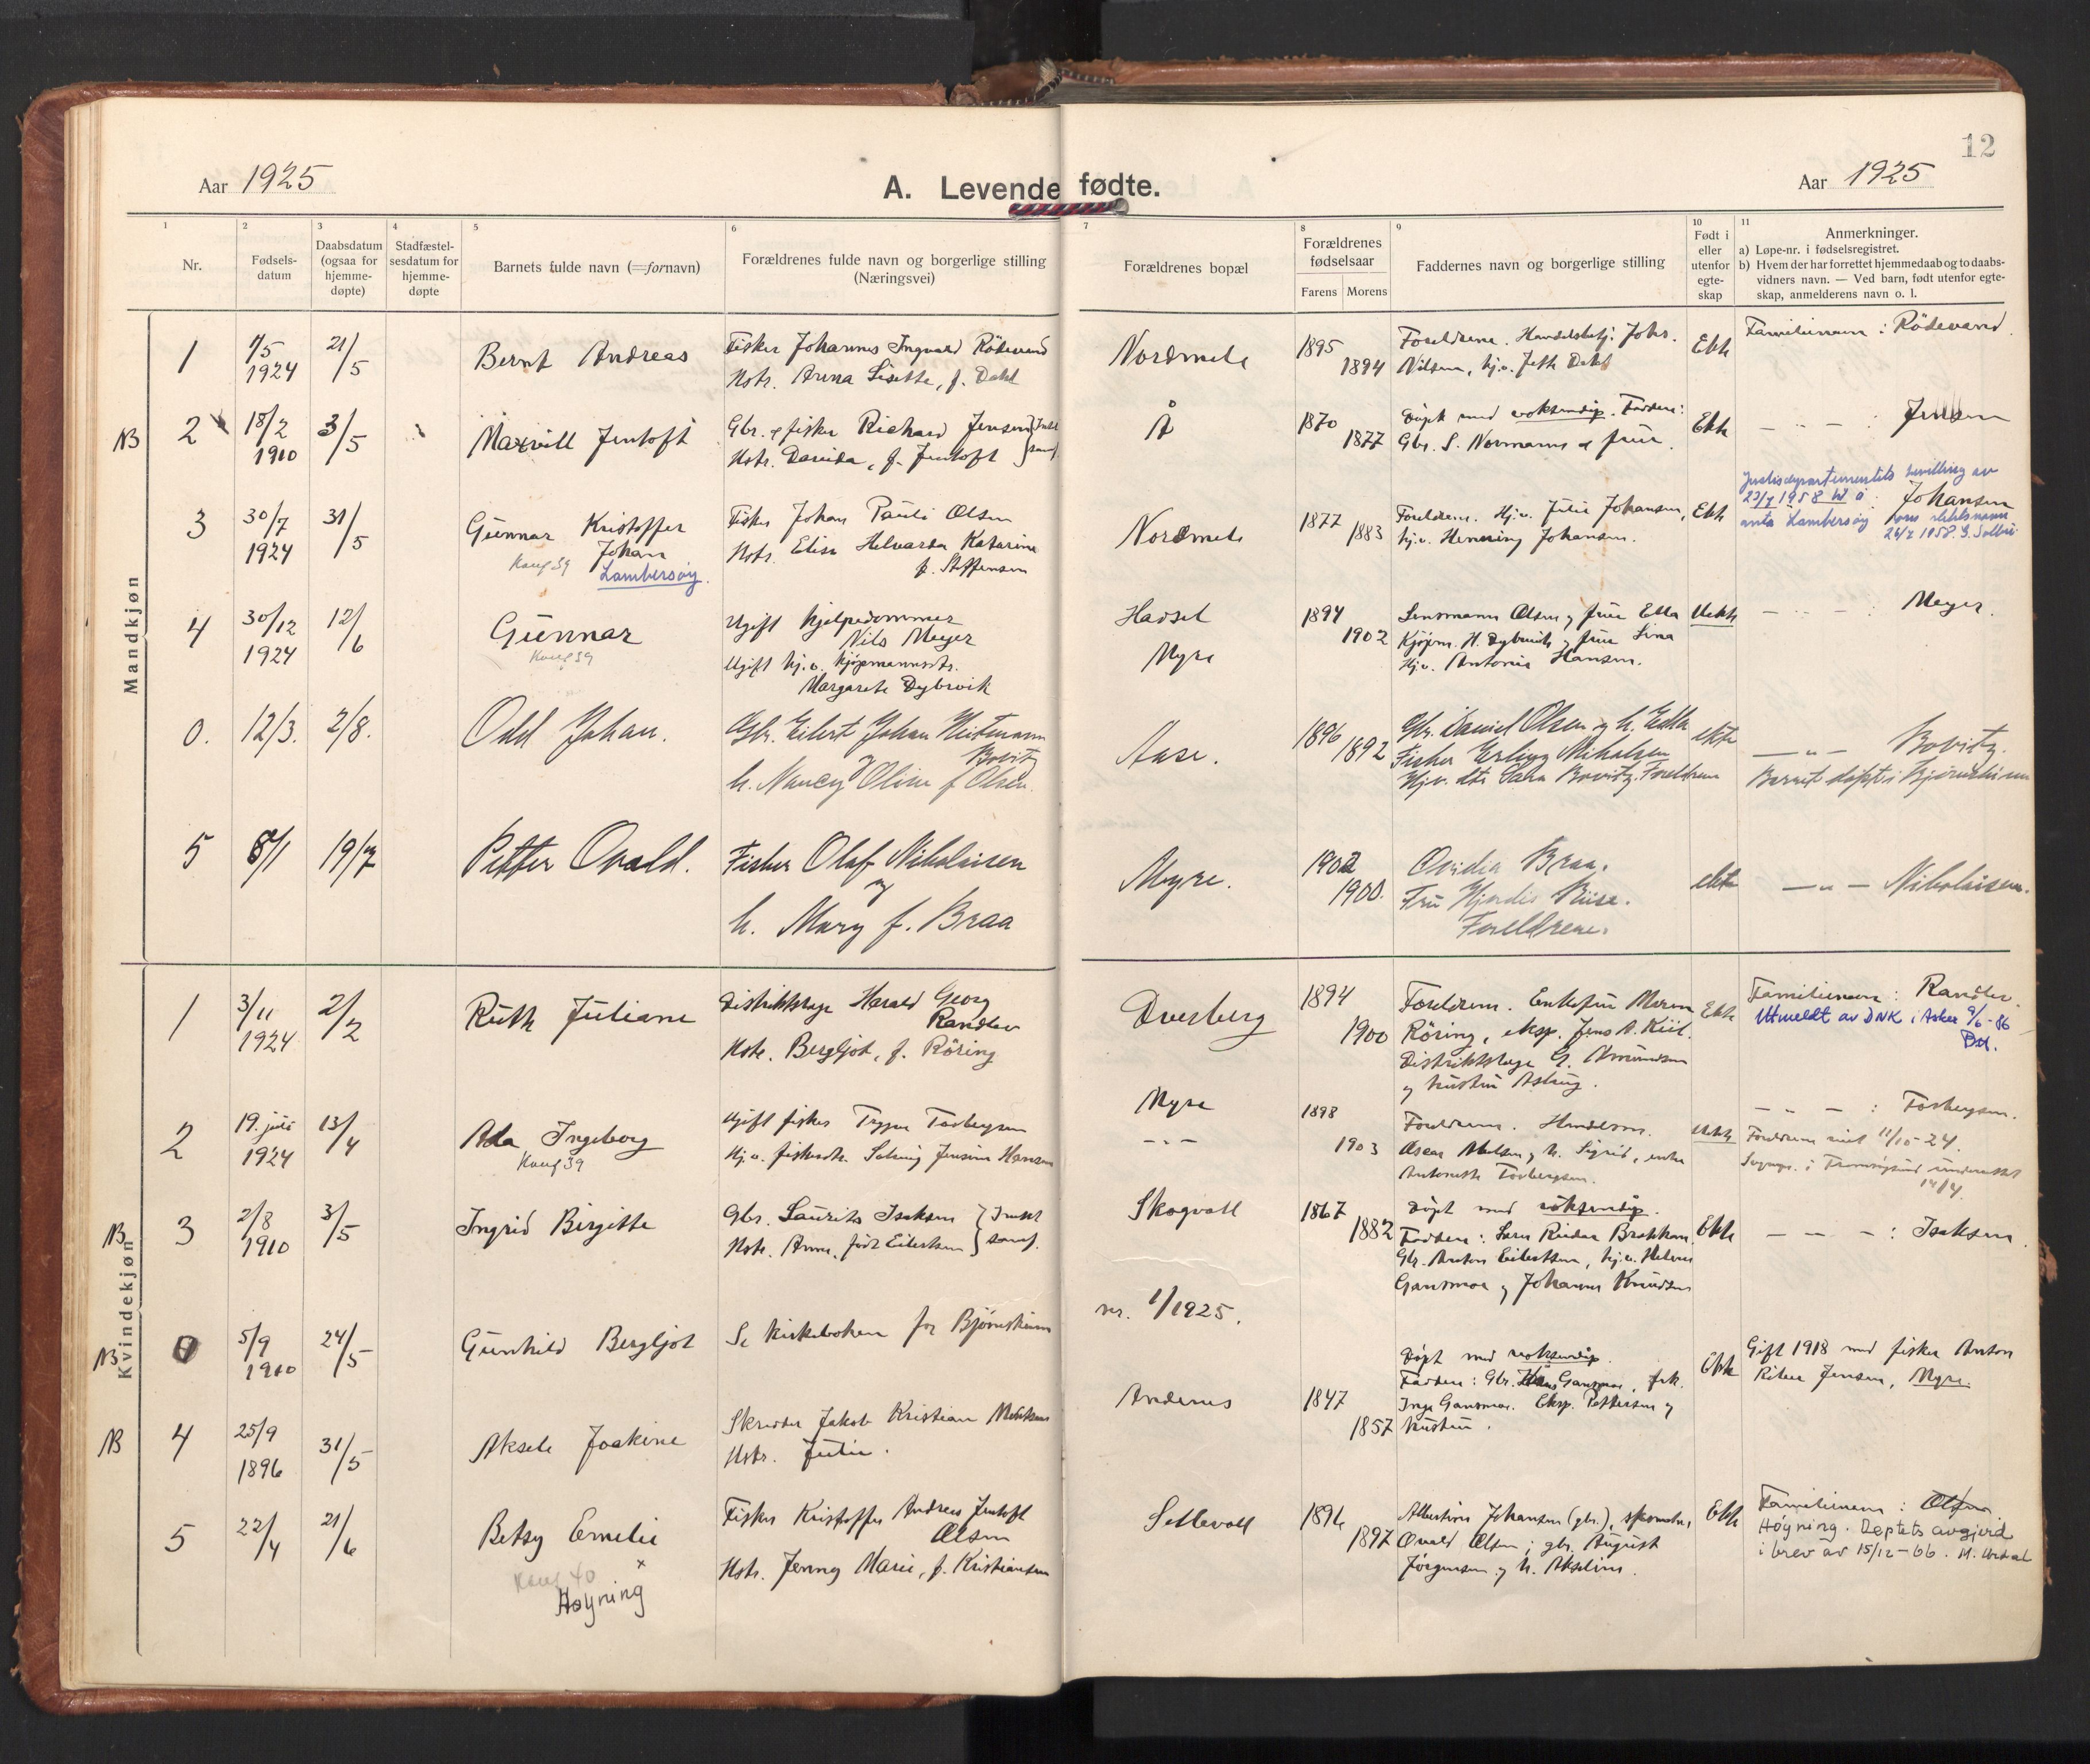 12
Aar 1925
A. Levende fødte.
Aar 1925
1 2 3 4 5 6 7 8 9 10 11
Nr.
Fødsels-
datum
Daabsdatum
(ogsaa for
hjemme-
døpte)
Stadfæstel-
sesdatum for
hjemme-
døpte
Barnets fulde navn (=fornavn)
Forældrenes fulde navn og borgerlige stilling
(Næringsvei)
Forældrenes bopæl
Forældrenes
fødselsaar
Farens Morens
Faddernes navn og borgerlige stilling
Født i
eller
utenfor
egte-
skap
Anmerkninger.
a) Løpe-nr. i fødselsregistret.
b) Hvem der har forrettet hjemmedaab og to daabs-
vidners navn. — Ved barn, født utenfor egte-
skap, anmelderens navn o. l.
Mandkjøn
1
1/5
1924
21/5
Bernt Andreas
Fisker Johannes Ingvald Rödevand
Hstr. Anna Lisette, f. Dahl
Nordmela
1895
1894
Foreldrene. Handelsbetj. Johs.
Nilsen, hj.v. Jeth Dahl
Ekte
Familienavn: Rödevand.
NB
2
18/2
1910
3/5
Maxvill Jentoft
Gbr. & fisker Richard Jensen
Hstr. Davida, f. Jentoft
Å
1870
1877
Döpt med voksendåp. Faddere:
Gbr. S. Normann & frue.
Ekte
— " — : Jensen
3
30/7
1924
31/5
Gunnar Kristoffer
Johan
Konf 39
Lambersøy.
Fisker Johan Pauli Olsen
Hstr. Elise Helvarda Katarine
f. Steffensen
Nordmela
1877
1883
Foreldrene. Hj.v. Julie Johansen,
hj.v. Henning Johansen.
Ekte
Justisdepartementets bevilling av
23/7 1958 til å : Johansen
anta Lambersøy
4
30/12
1924
12/6
Gunnar
Konf 39
Ugift hjelpedommer
Nils Meyer
Ugift hj.v. kjöpmannsdtr.
Margarete Dybwik
Hadsel
Myre
1894
1902
Lensmann Olsen og frue Ella
Kjöpm. H. Dybwik og frue Lina
Hj.v. Antonie Hansen.
Uekte
— " — : Meyer.
0.
12/3.
2/8.
Odd Johan.
Gbr. Eilert Johan Heitmann
Bovitz
og
h. Nancy Oline f Olsen.
Aase.
1896
1892
Gbr. Daniel Olsen og h. Edle
Fisker Erling Nikolsen
Hjv. dtr Sara Bovitz. Foreldrene
ekte
— " — Bovitz.
Barnet döpt i Bjørnskinn
5
8/1
19/7
Petter Ovald.
Fisker Olaf Nikolaisen
og
h. Mary f. Braa
Myre.
1902
1900.
Ovidia Braa.
Fru Hjørdis Riise.
Foreldrene.
ekte
— " — Nikolaisen.
Kvindekjøn
1
3/11
1924
2/2
Ruth Juliane
Distriktslege Harald Georg
Randlev
Hstr. Bergljot, f. Röring
Dverberg
1894
1900
Foreldrene. Enkefru Maren
Röring, eksp. Jens A. Kiil.
Distriktslege G. Amundsen
og hustru Aslaug.
Ekte
Familienavn: Randlev.
Utmeldt av DNK i Asker 9/6-86
2
19. juli
1924
13/4
Ada Ingeborg
Konf 39
Ugift fisker Trygve Torbergsen
Hj.v. fiskerdtr. Solveig Jensine Hansen
Myre
— " —
1898
1903
Foreldrene. Handelsm.
Oscar Abelsen og h. Sigrid, enke
Antonette Torbergsen.
Uekte
— " — : Torbergsen.
Foreldrene viet 11/10-24.
14/4.
NB
3
2/8
1910
3/5
Ingrid Birgitte
Gbr. Laurits Isaksen
Hstr. Anna, född Eilertsen
Skogvoll
1867
1882
Döpt med voksendåp.
Faddere: Lærer Reidar Brekkan,
Gbr. Anton Eilertsen, hj.v. Helene
Gansmoe og Johanne Knudsen
Ekte
— " — : Isaksen
NB
0
5/9
1910
24/5
Gunhild Bergljot
Se kirkeboken for Bjørnskinn
nr. 1/1925.
NB
4
25/9
1896
31/5
Aksele Joakine
Skredder Jakob Kristian
Hstr. Julie.
Andenes
1847
1857
Döpt med voksendåp.
Faddere: Gbr. Gansmoe, frk.
Inga Gansmoe. Eksp. Pettersen og
hustru.
Ekte
Gift 1918 med fisker Anton
Rikar Jensen, Myre
5
22/4
21/6
Betsy Emelie
Konf 40
x
Høyning
Fisker Kristoffer Andreas Jentoft
Olsen
Hstr. Jenny Marie, f. Kristiansen
Sellevoll
1896
1897
Albertine Johansen (gbr.), skomaker
Ovald Olsen; gbr. August
Jörgensen og h. Akseline.
Ekte
Familienavn: Olsen
Høyning. Deptets avgjørd
i brev av 15/12-66.